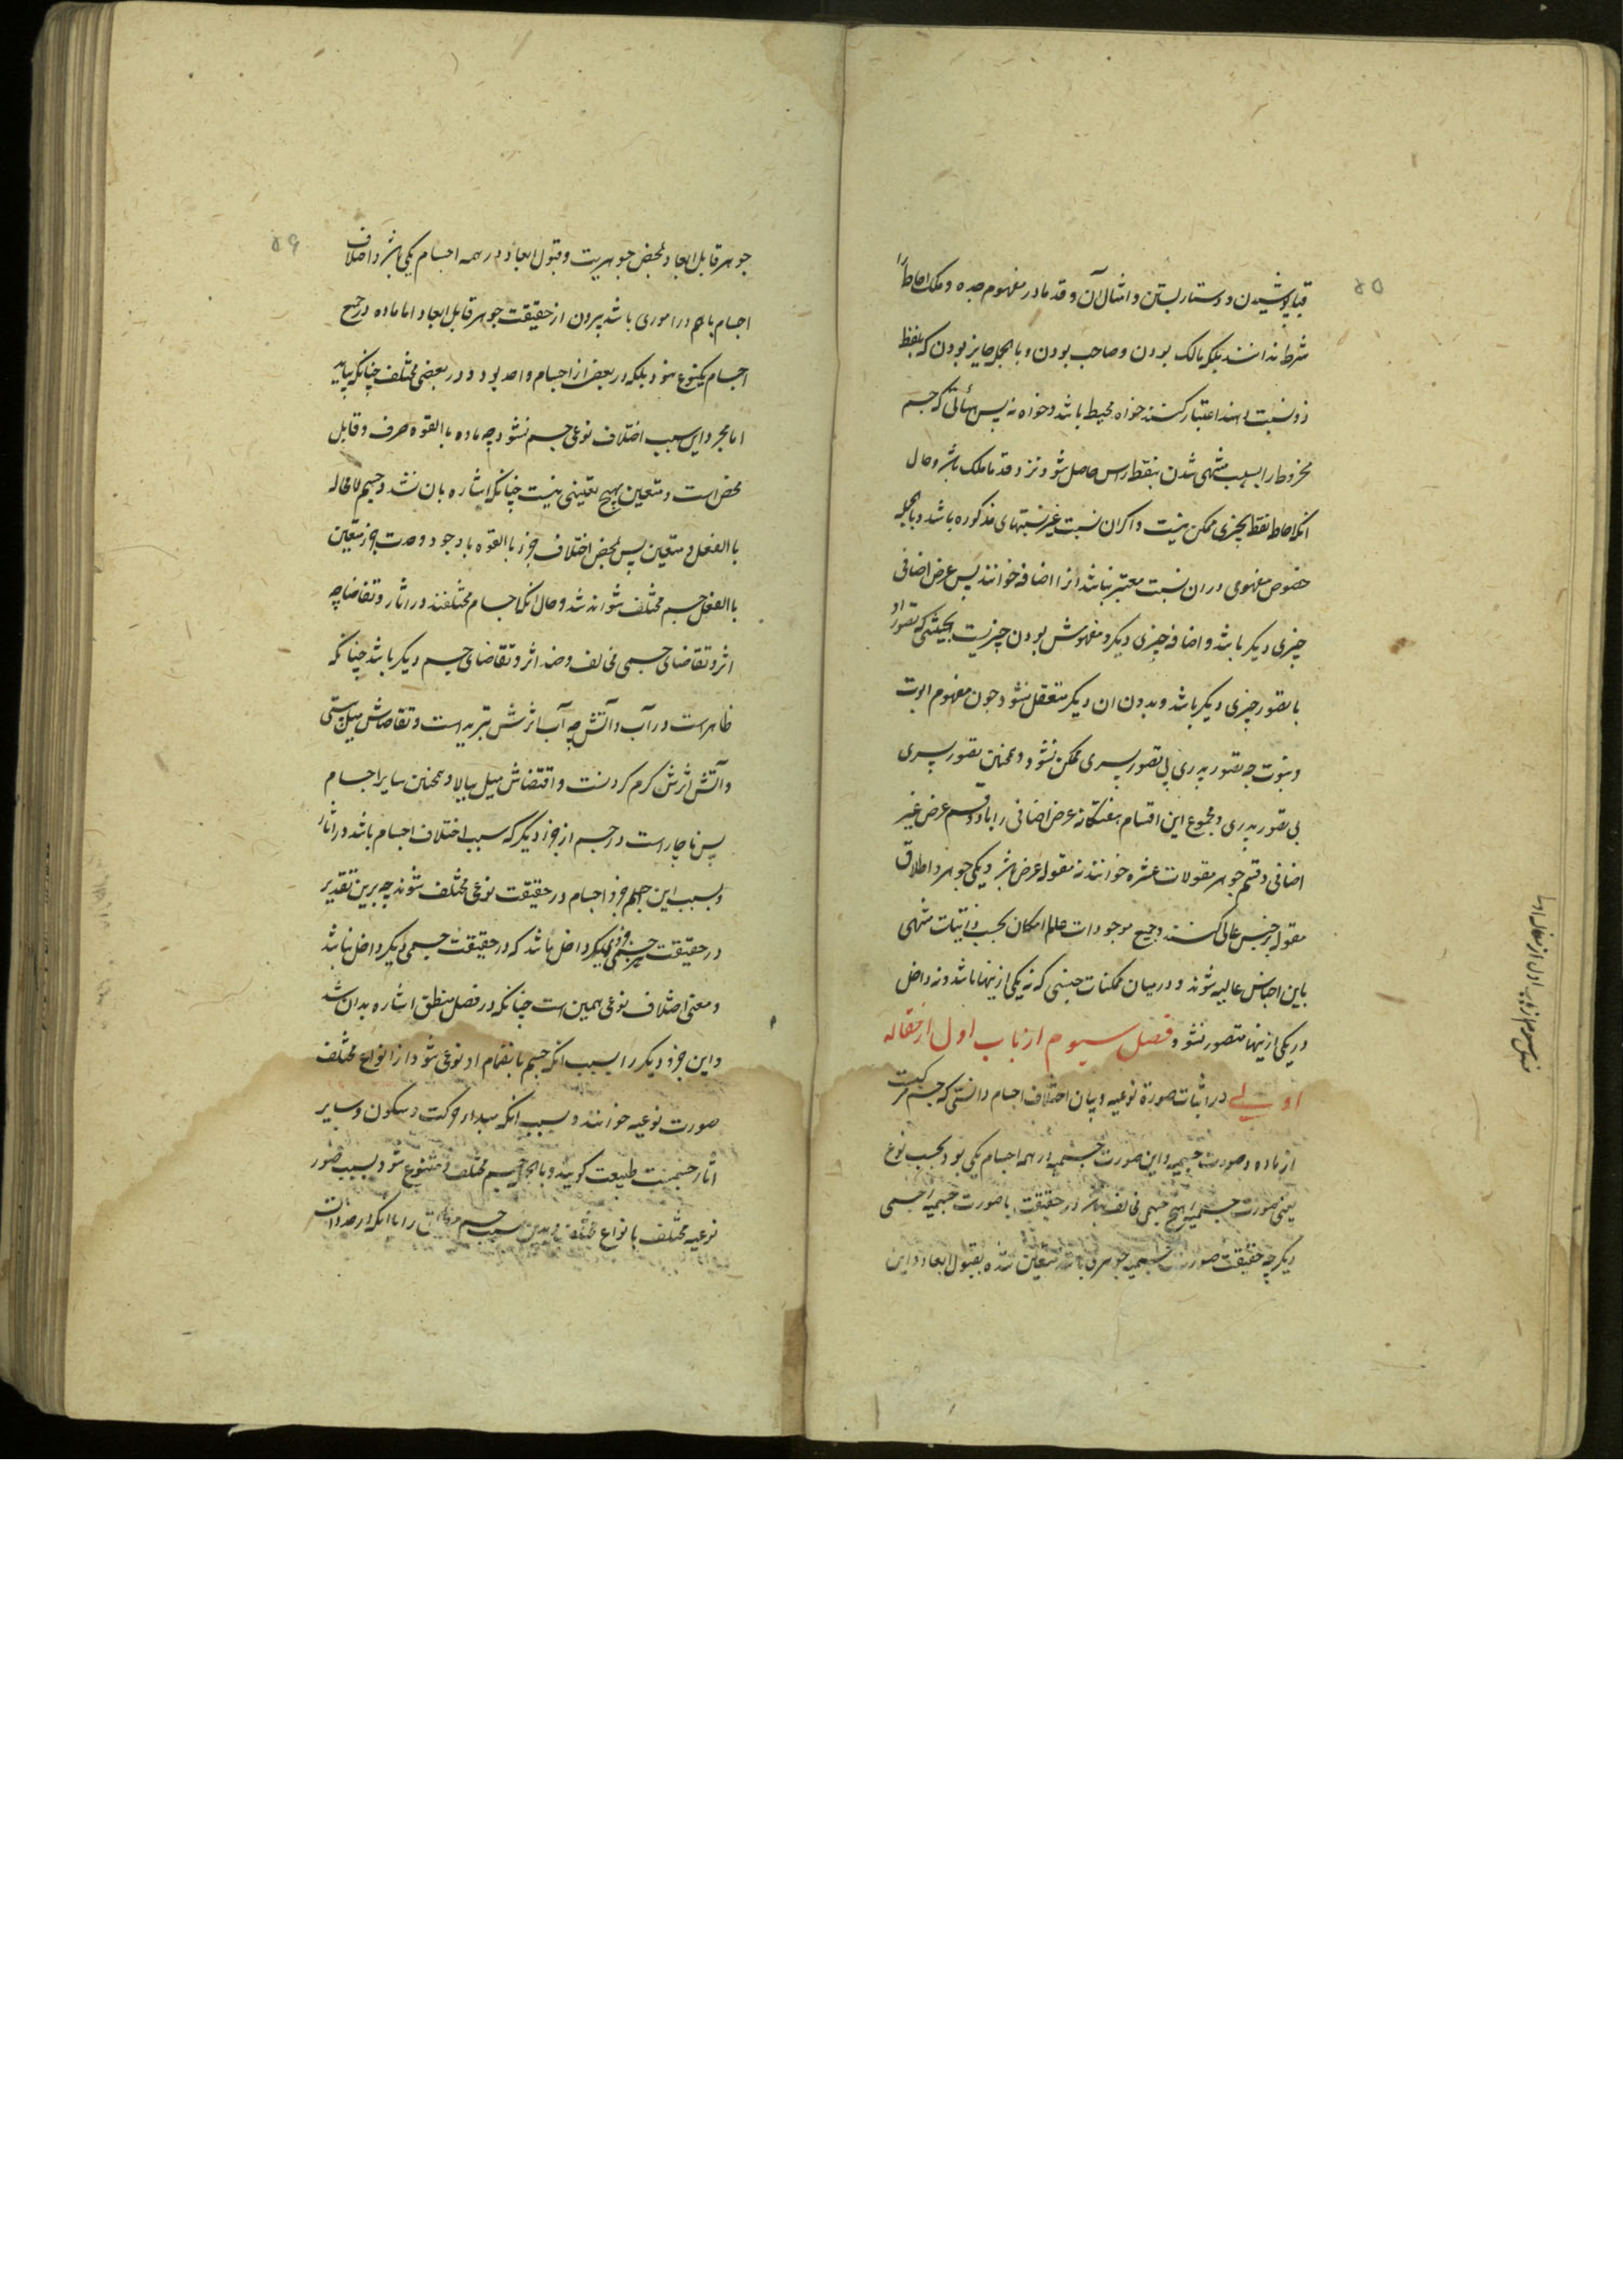 ۵۵
قبا پوشیدن و دستار بستن و امثال آن و قدما در مفهوم جده و ملک احاطه را
شرط ندانند بلکه مالک بودن و صاحب بودن و بالجمله حایز بودن که بلفظ
ذو نسبت دهند اعتبار کنند خواه محیط باشد و خواه نه پس هیأتی که جسم
مخروط را بسبب منتهی شدن بنقطه راس حاصل شود نزد قدما ملک باشد و حال
آنکه احاطه نقطه بچیزی ممکن نیست و اگر آن نسبت غیر نسبتهای مذکوره باشد و بالجمله
خصوص مفهومی در ان نسبت معتبر نباشد انرا اضافه خوانند پس عرض اضافی
چیزی دیکر باشد و اضافه چیزی دیکر و مفهومش بودن چیزیست بحیثیتی که تصور او
با تصور چیزی دیکر باشد و بدون ان دیکر متعقل نشود چون مفهوم ابوت
و بنوت چه تصور پدری بی تصور پسری ممکن نشود و همچنین تصور پسری
بی تصور پدری و مجموع این اقسام هفتکانه عرض اضافی را با دو قسم عرض غیر
اضافی و قسم جوهر مقولات عشره خوانند نه مقوله عرض باشد و یکی جوهر و اطلاق
مقوله بر جنس عالی کنند و جمیع موجودات عالم امکان بحسب ذاتیات منتهی
باین اجناس عالیه شوند و در میان ممکنات جنسی که نه یکی ازینها باشد و نه داخل
در یکی ازینها متصور نشود فصل سیوم از باب اول از مقاله
اولی در اثبات صورة نوعیه و بیان اختلاف اجسام دانستی که جسم مرکبست
از ماده و صورت جسمیه و این صورت جسمیه در همه اجسام یکی بود بحسب نوع
یعنی صورت جسمیه هیچ جسمی مخالف نباشد در حقیقت با صورت جسمیه جسمی
دیکر چه حقیقت صورت جسمیه جوهری باشد متعین شده بقبول ابعاد و این
فصل سیوم از باب اول از مقاله اولی
۵۶
جوهر قابل ابعاد بمحض جوهریت و قبول ابعاد در همه اجسام یکی باشد و اختلاف
اجسام با هم در اموری باشد بیرون از حقیقت جوهر قابل ابعاد اما ماده در جمیع
اجسام یکنوع نبود بلکه در بعضی از اجسام واحد بود و در بعضی مختلف چنانکه بیاید
اما بمجرد این سبب اختلاف نوعی جسم نشود چه ماده بالقوه صرف و قابل
محض است و متعین بهیچ تعینی نیست چنانکه اشاره بان شد و جسم لامحاله
بالفعل و متعین پس بمحض اختلاف جزء بالقوه با وجود وحدت جزء متعین
بالفعل جسم مختلف نتواند شد و حال انکه اجسام مختلفند در اثار و تقاضا چه
اثر و تقاضای جسمی مخالف و ضد اثر و تقاضای جسم دیکر باشد چنانکه
ظاهر است در آب و آتش چه آب اثرش تبرید است و تقاضاش میل پستی
و آتش اثرش کرم کردنست و اقتضاش میل ببالا و همچنین سایر اجسام
پس ناچار است در جسم از جزء دیکر که سبب اختلاف اجسام باشد در اثار
و بسبب این جزء اجسام در حقیقت نوعی مختلف شوند چه برین تقدیر
در حقیقت هر جسمی جزوی دیکر داخل باشد که در حقیقت جسمی دیکر داخل نباشد
و معنی اختلاف نوعی همین است چنانکه در فصل منطق اشاره بدان شد
و این جزو دیکر را بسبب انکه جسم بانضمام او نوعی شود از انواع مختلف
صورت نوعیه خوانند و بسبب انکه مبداء حرکت و سکون و سایر
اثار جسمیت طبیعت کویند و بالجمله جسم مختلف و متنوع شود بسبب صور
نوعیه مختلف بانواع مختلف و بدین سبب جسم را با انکه در حد ذات